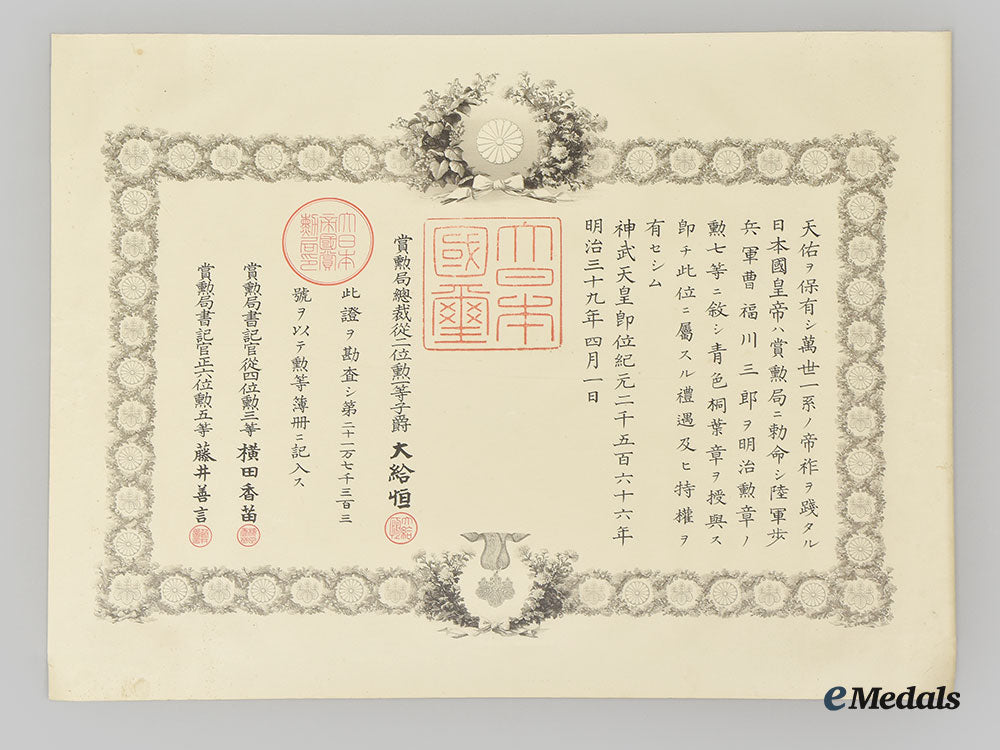 天佑ヲ保有シ萬世一系ノ帝祚ヲ踐タル
日本國皇帝ハ賞勲局ニ勅命シ陸軍歩
兵軍曹福川三郎ヲ明治勲章ノ
勲七等ニ敘シ青色桐葉章ヲ授與ス
卽チ此位ニ屬スル禮遇及ヒ特權ヲ
有セシム
神武天皇卽位紀元二千五百六十六年
明治三十九年四月一日
大日本
國璽
賞勲局總裁從二位勲一等子爵 大給恒
此證ヲ勘査シ第二十一万七千三百三
號ヲ以テ勲等簿册ニ記入ス
大日本
帝國賞
勲局印
賞勲局書記官從四位勲三等 横田香苗
賞勲局書記官正六位勲五等 藤井善言
eMedals